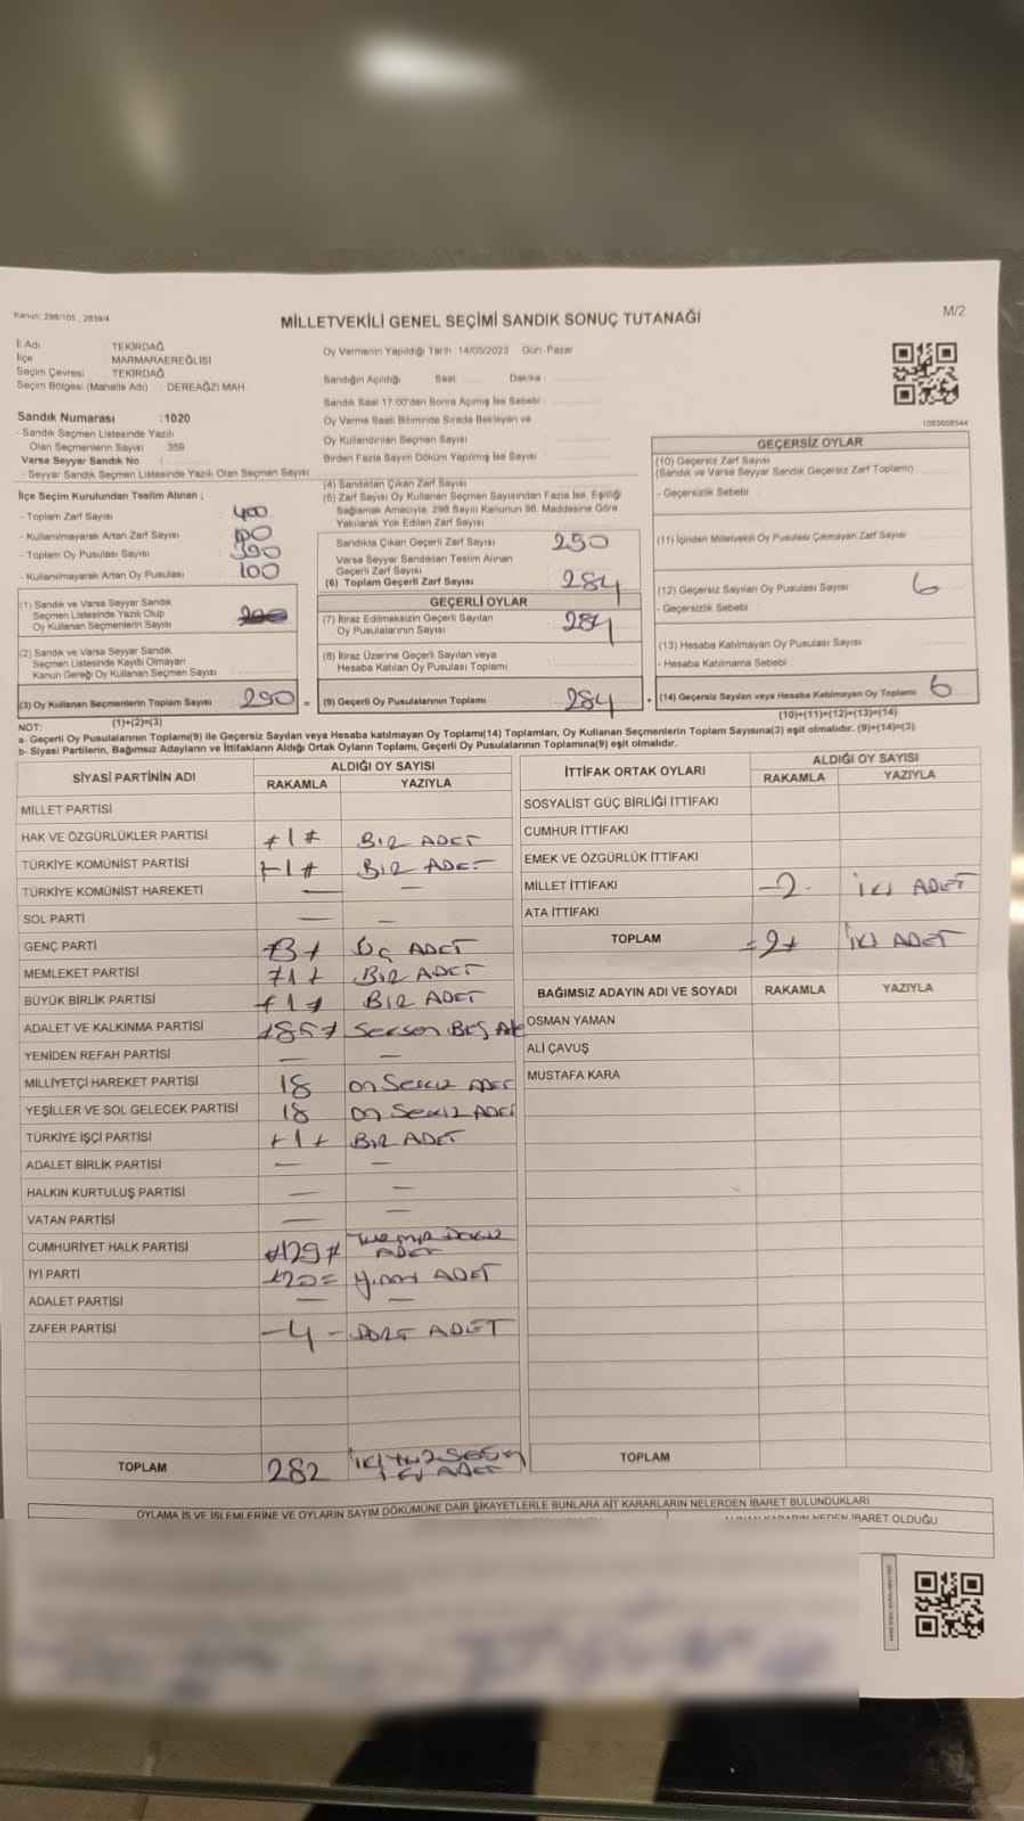 Kanun: 298/105 , 2839/4
M/2
MİLLETVEKİLİ GENEL SEÇİMİ SANDIK SONUÇ TUTANAĞI
İl Adı TEKİRDAĞ
İlçe MARMARAEREĞLİSİ
Seçim Çevresi TEKİRDAĞ
Seçim Bölgesi (Mahalle Adı) DEREAĞZI MAH.
Oy Vermenin Yapıldığı Tarih :14/05/2023 Gün: Pazar
Sandığın Açıldığı Saat Dakika
Sandık Saat 17:00'den Sonra Açılmış İse Sebebi
Oy Verme Saati Bitiminde Sırada Bekleyen ve
Oy Kullandırılan Seçmen Sayısı
Birden Fazla Sayım Döküm Yapılmış İse Sayısı
Sandık Numarası :1020
- Sandık Seçmen Listesinde Yazılı
Olan Seçmenlerin Sayısı 359
Varsa Seyyar Sandık No
- Seyyar Sandık Seçmen Listesinde Yazılı Olan Seçmen Sayısı
İlçe Seçim Kurulundan Teslim Alınan ;
- Toplam Zarf Sayısı 400
- Kullanılmayarak Artan Zarf Sayısı
- Toplam Oy Pusulası Sayısı 390
- Kullanılmayarak Artan Oy Pusulası 100
(1) Sandık ve Varsa Seyyar Sandık
Seçmen Listesinde Yazılı Olup
Oy Kullanan Seçmenlerin Sayısı
(2) Sandık ve Varsa Seyyar Sandık
Seçmen Listesinde Kayıtlı Olmayan
Kanun Gereği Oy Kullanan Seçmen Sayısı
(3) Oy Kullanan Seçmenlerin Toplam Sayısı 290 =
(1)+(2)=(3)
(4) Sandıktan Çıkan Zarf Sayısı
(5) Zarf Sayısı Oy Kullanan Seçmen Sayısından Fazla İse, Eşitliği
Sağlamak Amacıyla, 298 Sayılı Kanunun 98. Maddesine Göre
Yakılarak Yok Edilen Zarf Sayısı
Sandıkta Çıkan Geçerli Zarf Sayısı 290
Varsa Seyyar Sandıktan Teslim Alınan
Geçerli Zarf Sayısı
(6) Toplam Geçerli Zarf Sayısı 284
GEÇERLİ OYLAR
(7) İtiraz Edilmeksizin Geçerli Sayılan
Oy Pusulalarının Sayısı 284
(8) İtiraz Üzerine Geçerli Sayılan veya
Hesaba Katılan Oy Pusulası Toplamı
(9) Geçerli Oy Pusulalarının Toplamı 284 +
GEÇERSİZ OYLAR
(10) Geçersiz Zarf Sayısı
(Sandık ve Varsa Seyyar Sandık Geçersiz Zarf Toplamı)
- Geçersizlik Sebebi
(11) İçinden Milletvekili Oy Pusulası Çıkmayan Zarf Sayısı
(12) Geçersiz Sayılan Oy Pusulası Sayısı 6
- Geçersizlik Sebebi
(13) Hesaba Katılmayan Oy Pusulası Sayısı
- Hesaba Katılmama Sebebi
(14) Geçersiz Sayılan veya Hesaba Katılmayan Oy Toplamı 6
(10)+(11)+(12)+(13)=(14)
NOT:
a- Geçerli Oy Pusulalarının Toplamı(9) ile Geçersiz Sayılan veya Hesaba katılmayan Oy Toplamı(14) Toplamları, Oy Kullanan Seçmenlerin Toplam Sayısına(3) eşit olmalıdır. (9)+(14)=(3)
b- Siyasi Partilerin, Bağımsız Adayların ve İttifakların Aldığı Ortak Oyların Toplamı, Geçerli Oy Pusulalarının Toplamına(9) eşit olmalıdır.
SİYASİ PARTİNİN ADI ALDIĞI OY SAYISI
RAKAMLA YAZIYLA
MİLLET PARTİSİ
HAK VE ÖZGÜRLÜKLER PARTİSİ 1 BİR ADET
TÜRKİYE KOMÜNİST PARTİSİ 1 BİR ADET
TÜRKİYE KOMÜNİST HAREKETİ — —
SOL PARTİ — —
GENÇ PARTİ 3 ÜÇ ADET
MEMLEKET PARTİSİ 1 BİR ADET
BÜYÜK BİRLİK PARTİSİ 1 BİR ADET
ADALET VE KALKINMA PARTİSİ 85 SEKSEN BEŞ
YENİDEN REFAH PARTİSİ — —
MİLLİYETÇİ HAREKET PARTİSİ 18 ON SEKİZ ADET
YEŞİLLER VE SOL GELECEK PARTİSİ 18 ON SEKİZ ADET
TÜRKİYE İŞÇİ PARTİSİ 1 BİR ADET
ADALET BİRLİK PARTİSİ — —
HALKIN KURTULUŞ PARTİSİ — —
VATAN PARTİSİ — —
CUMHURİYET HALK PARTİSİ 129 ADET
İYİ PARTİ 20 YİRMİ ADET
ADALET PARTİSİ — —
ZAFER PARTİSİ -4- DÖRT ADET
TOPLAM 282 İKİ YÜZ SEKSEN İKİ ADET
İTTİFAK ORTAK OYLARI ALDIĞI OY SAYISI
RAKAMLA YAZIYLA
SOSYALİST GÜÇ BİRLİĞİ İTTİFAKI
CUMHUR İTTİFAKI
EMEK VE ÖZGÜRLÜK İTTİFAKI
MİLLET İTTİFAKI -2- İKİ ADET
ATA İTTİFAKI
TOPLAM 2 İKİ ADET
BAĞIMSIZ ADAYIN ADI VE SOYADI RAKAMLA YAZIYLA
OSMAN YAMAN
ALİ ÇAVUŞ
MUSTAFA KARA
TOPLAM
OYLAMA İŞ VE İŞLEMLERİNE VE OYLARIN SAYIM DÖKÜMÜNE DAİR ŞİKAYETLERLE BUNLARA AİT KARARLARIN NELERDEN İBARET BULUNDUKLARI
NEDEN İBARET OLDUĞU